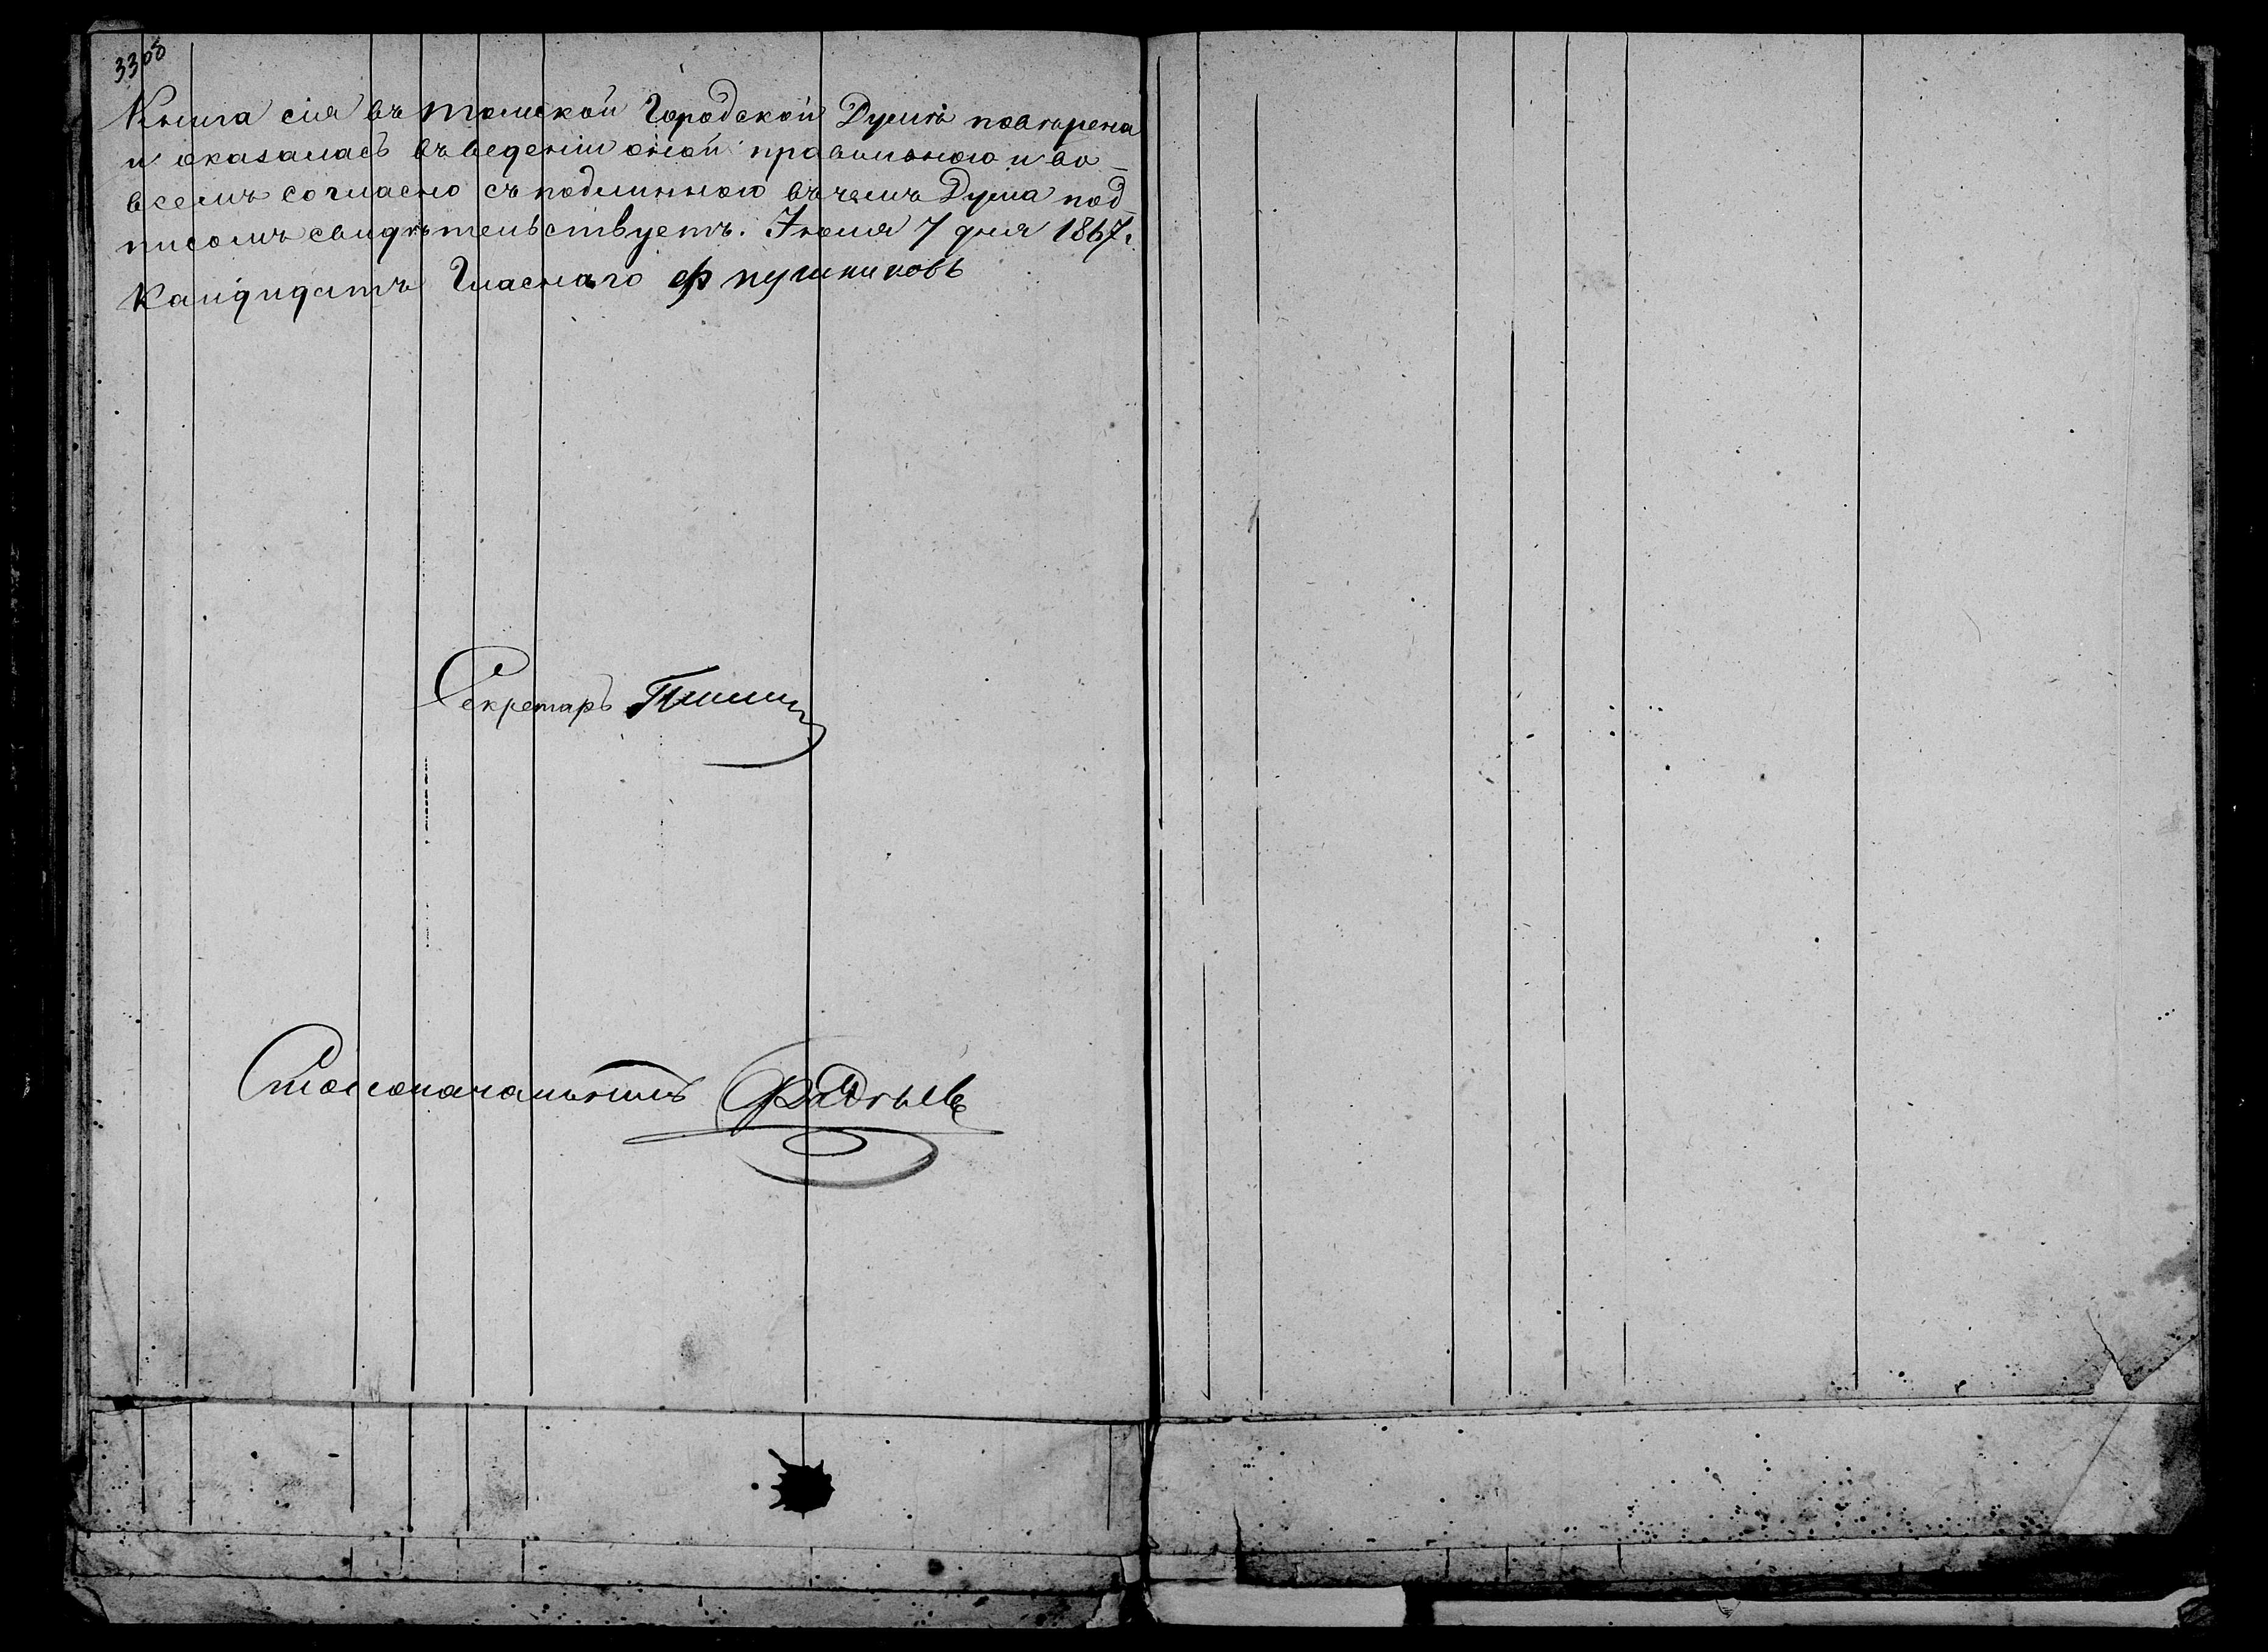 3308
Книга сія въ томской Городской Думѣ повѣрена
и оказалась въ веденіи оной правильною и во
всемъ согласно съ подлинною въ чемъ Дума под
писомъ свидѣтельствуетъ. Іюля 7 дня 1867г
Кандидатъ Гласнаго Ф пушниковъ
Секретарь
Столоначальникъ Фадѣевъ